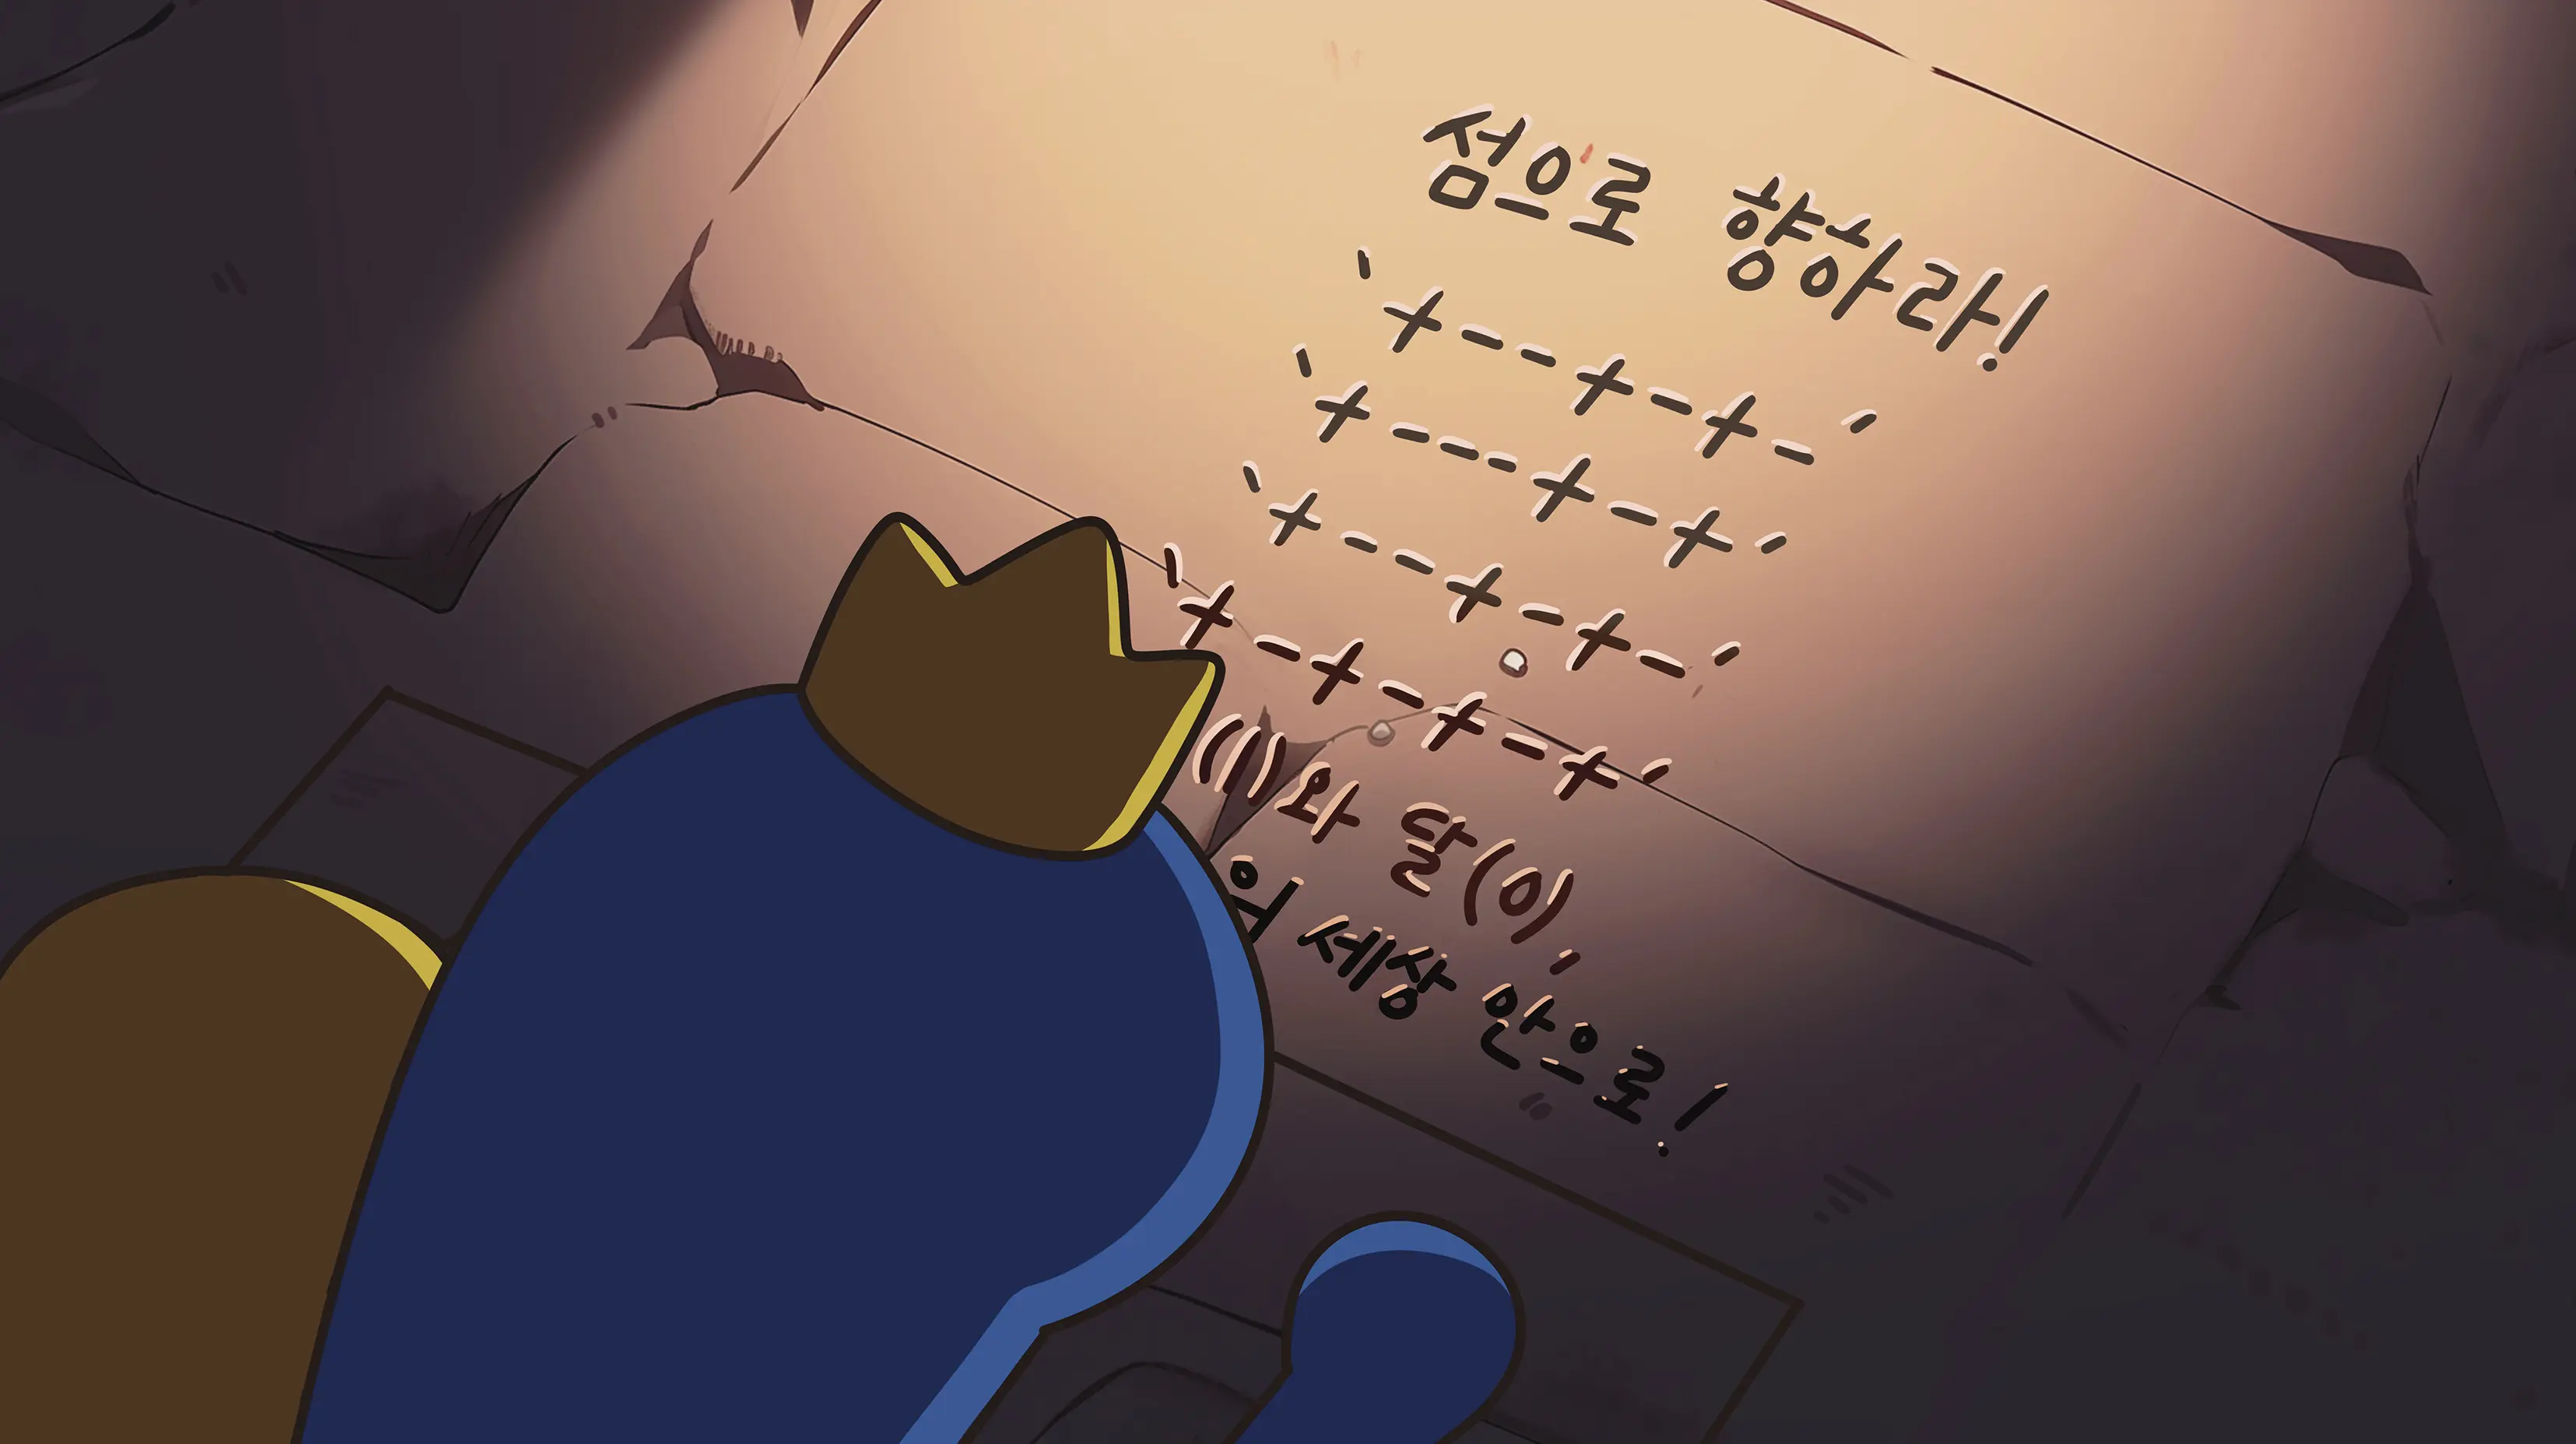 섬으로 향하라!
`+--+-+-´
`+---+-+´
`+--+-+-´
`+-+-+-+´
(1)와 달(0),
세상 안으로!